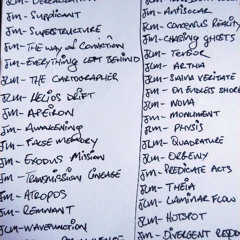 JM- SUPPLICANT
JM- SUPERSTRUCTURE
JM- THE WAY OF CONVICTION
JM- EVERYTHING LEFT BEHIND
JLM - THE CARTOGRAPHER
JLM- HELIOS DRIFT
JM- APEIRON
JM- AWAKENING
JM- FALSE MEMORY
JM- EXODUS MISSION
JM- TRANSMISSION LINEAGE
JM- ATROPOS
JM- REMNANT
JLM- WAVEFUNCTION
JM- ANTISOLAR
JM- CONSENSUS REALITY
JM- CHASING GHOSTS
JM- TENSOR
JLM- ARTHA
JLM- SALVA VERITATE
JM- ON ENDLESS SHORE
JLM- NOVA
JM- MONUMENT
JLM- PHYSIS
JLM- QUADRATURE
JLM- ORBENY
JM- PREDICATE ACTS
JLM- THEIA
JLM- LAMINAR FLOW
JLM- HOTSPOT
JM- DIVERGENT RESPO